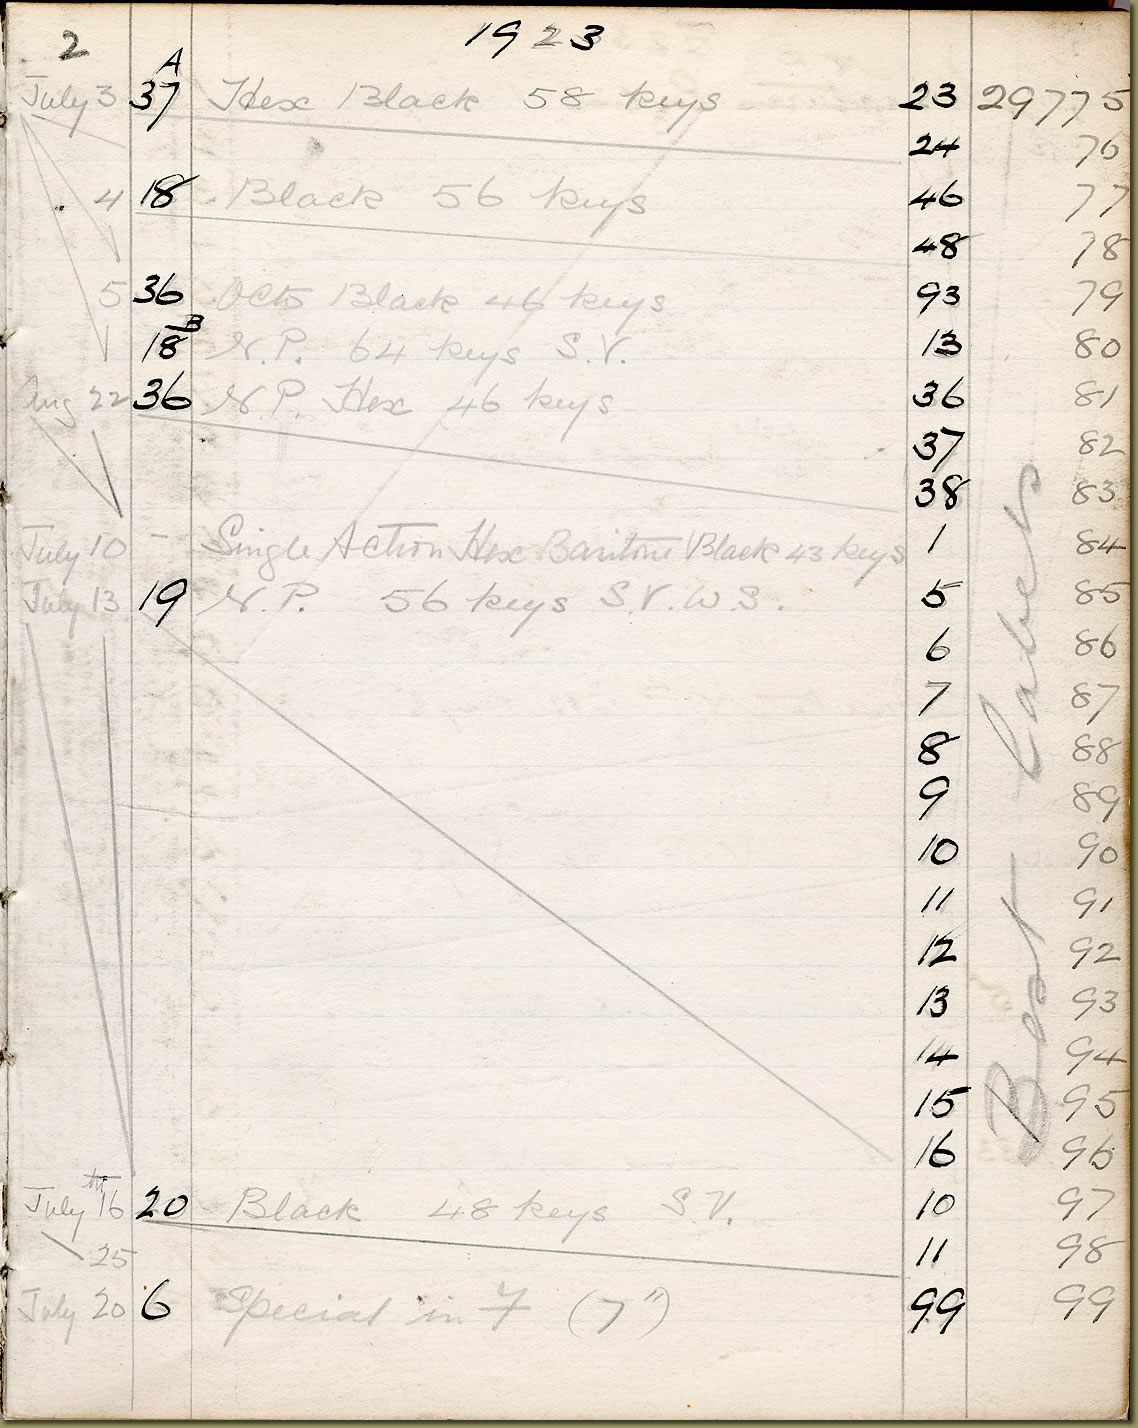 2 1923
A
July 3 37 Hex Black 58 keys 23 29775
24 76
4 18 Black 56 keys 46 77
48 78
5 36 Octo Black 46 keys 93 79
18 B N.P. 64 keys S.V. 13 80
Aug 22 36 N.P. Hex 46 keys 36 81
37 82
38 83
July 10 - Single Action Hex Baritone Black 43 keys 1 84
July 13 19 N.P. 56 keys S.V. W.S. 5 85
6 86
7 87
8 88
9 89
10 90
11 91
12 92
13 93
14 94
15 95
16 96
July 16th 20 Black 48 keys S.V. 10 97
25 11 98
July 20 6 Special in 7 (7") 99 99
Best Labels